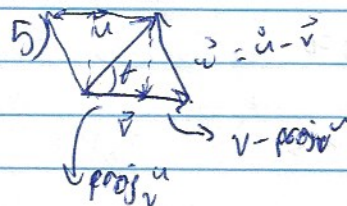 5) u w = u - v
t
v v - proj_v u
proj_v u